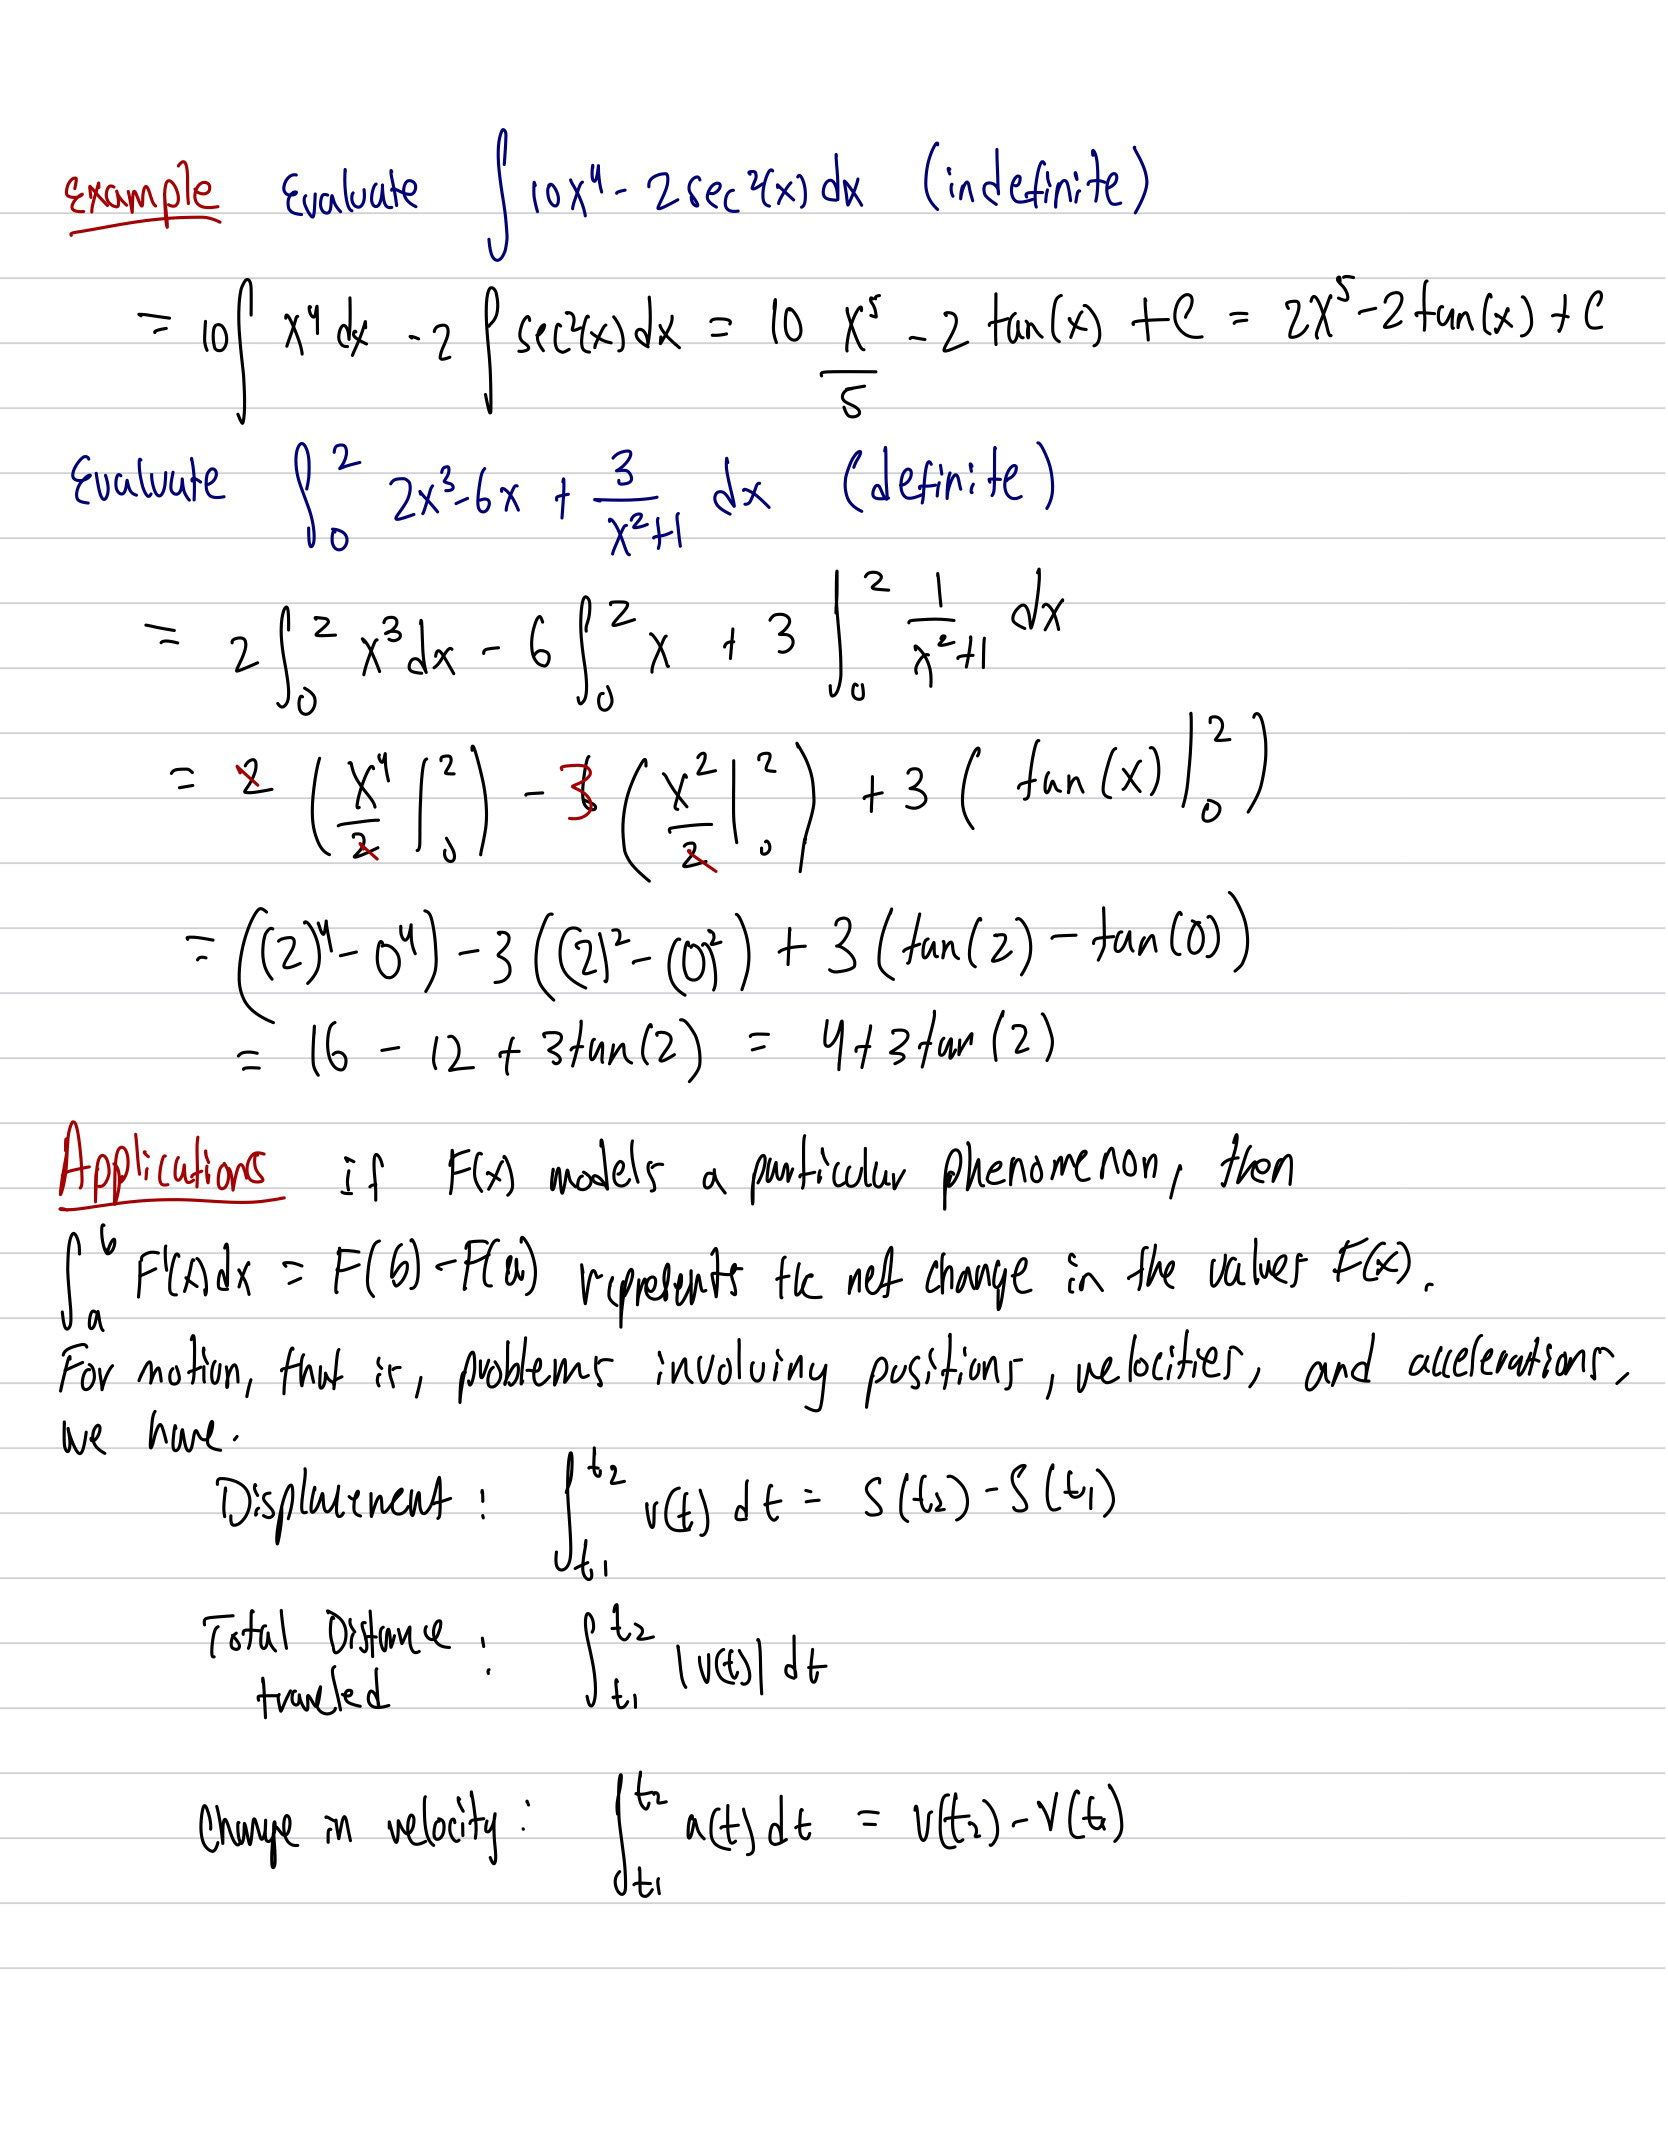 Example Evaluate ∫ 10x⁴ - 2sec²(x) dx (indefinite)
= 10∫ x⁴ dx - 2 ∫ sec²(x) dx = 10 x⁵/5 - 2 tan(x) + C = 2x⁵ - 2tan(x) + C
Evaluate ∫₀² 2x³ - 6x + 3/(x²+1) dx (definite)
= 2∫₀² x³ dx - 6∫₀² x + 3 ∫₀² 1/(x²+1) dx
= 2 (x⁴/2 |₀²) - 3 (x²/2 |₀²) + 3 (tan(x) |₀²)
= ((2)⁴ - 0⁴) - 3((2)² - (0)²) + 3(tan(2) - tan(0))
= 16 - 12 + 3tan(2) = 4 + 3tan(2)
Applications if F(x) models a particular phenomenon, then
∫ₐᵇ F'(x) dx = F(b) - F(a) represents the net change in the values F(x).
For motion, that is, problems involving positions, velocities, and accelerations,
we have.
Displacement : ∫_{t₁}^{t₂} v(t) dt = S(t₂) - S(t₁)
Total Distance : ∫_{t₁}^{t₂} |v(t)| dt
traveled
Change in velocity : ∫_{t₁}^{t₂} a(t) dt = v(t₂) - v(t₁)